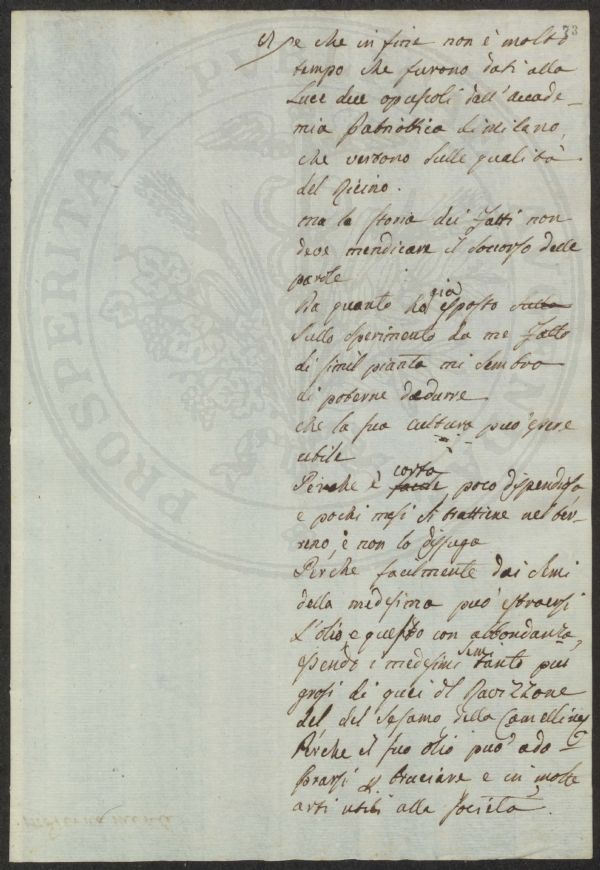 73
se che in fine non è molto
tempo che furono dati alla
Luce due opuscoli dall'accade-
mia Patriottica di Milano,
che vertono sulle qualità
del Ricino.
ma la storia dei fatti non
deve mendicare il soccorso delle
parole
Da quanto ho già esposto sulla
sullo sperimento da me fatto
di simil pianta mi sembra
di poterne dedurre
che la sua cultura può essere
utile
Perche è facile corta poco dispendiosa
e pochi mesi si trattiene nel ter-
reno, e non lo
Perche facilmente dai semi
della medesima può estraersi
L'olio e questo con abbondanza,
essendo i medesimi semi tanto più
grossi di quei del Ravizzone
del del Sesamo della Camellina
Perche il suo olio può ado-
prarsi p. bruciare e in molte
arti utili alla società.
PROSPERITATI PUBLICAE